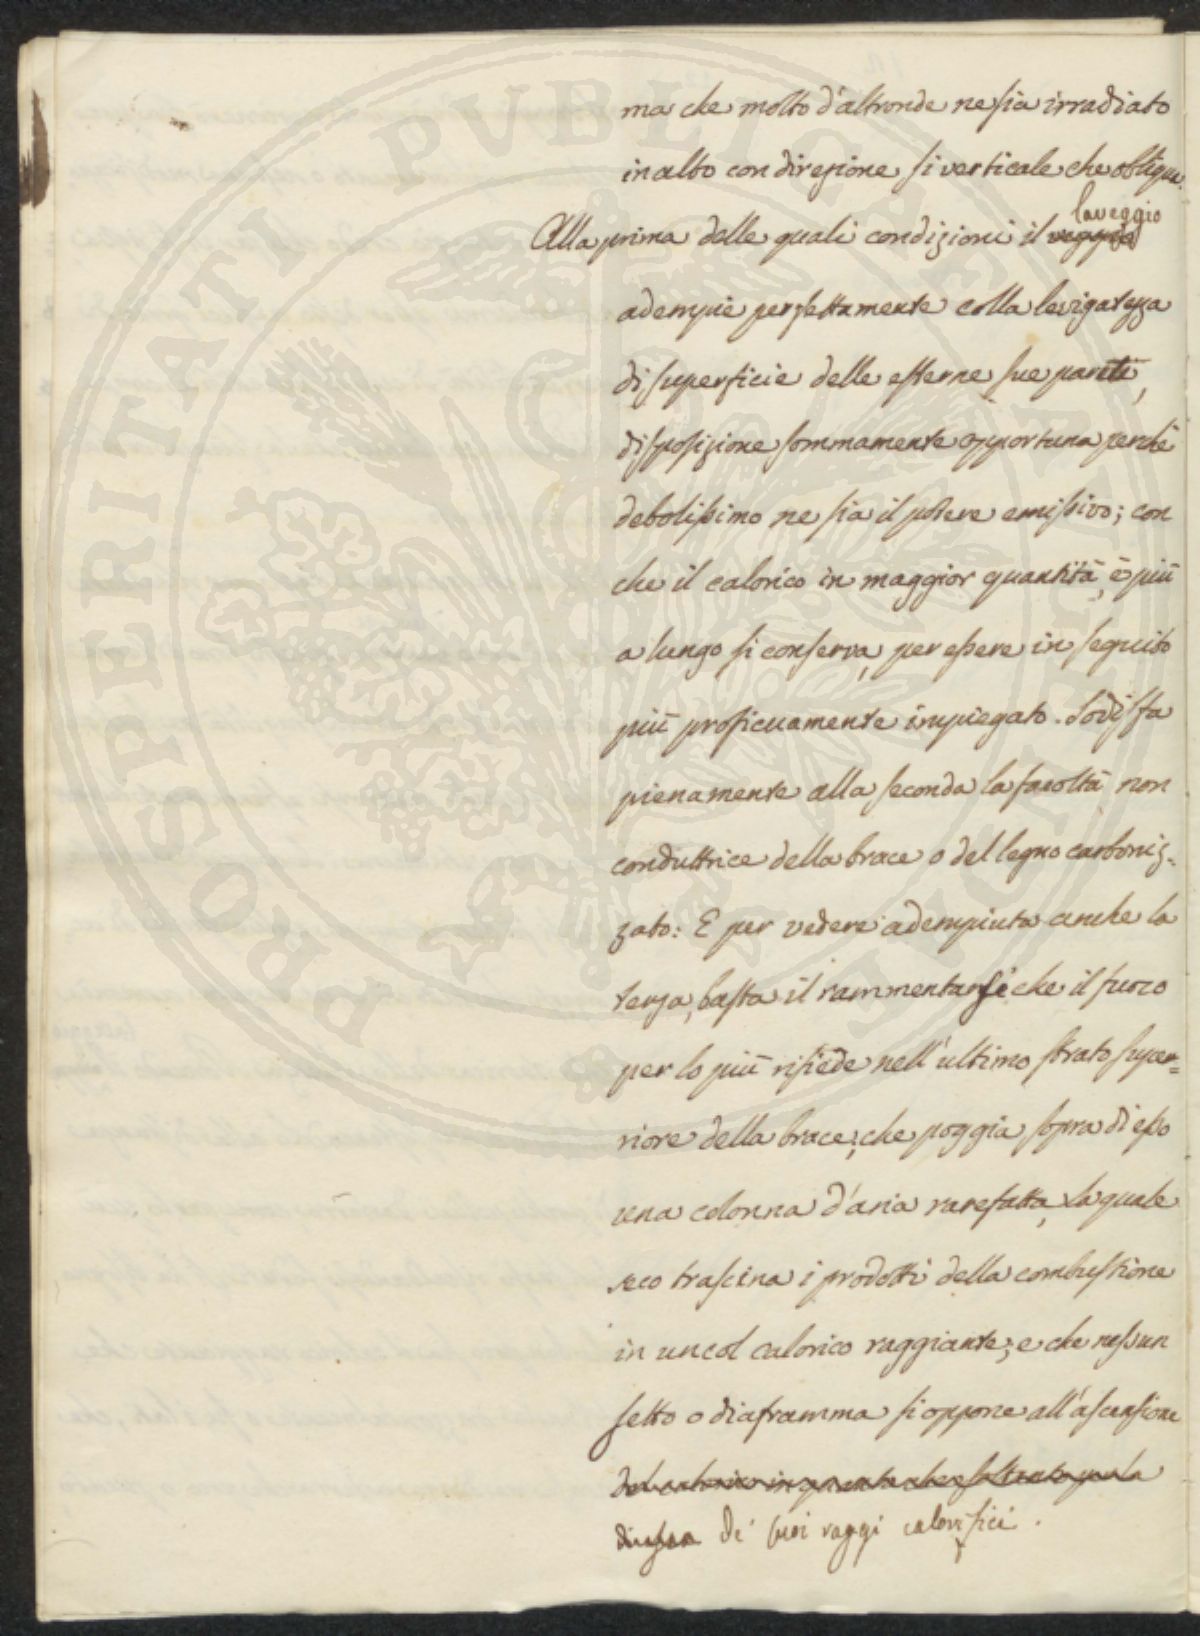 ma che molto d'altronde ne sia irradiato
in alto con direzione si verticale che obliqua.
laveggio
Alla prima delle quali condizioni il
adempie perfettamente colla levigatezza
di superficie delle esterne sue pareti,
disposizione sommamente opportuna perchè
debolissimo ne sia il potere emissivo; con
che il calorico in maggior quantità, è più
a lungo si conserva, per essere in seguito
più proficuamente impiegato. Sodisfa
pienamente alla seconda la facoltà non
conduttrice della brace o del legno carboniz-
zato: E per vedere adempiuta anche la
terza, basta il rammentarsi che il fuoco
per lo più risiede nell'ultimo strato supe-
riore della brace; che poggia sopra di esso
una colonna d'aria rarefatta, la quale
seco trascina i prodotti della combustione
in un col calorico raggiante; e che nessun
setto o diaframma si oppone all'ascensione
de' suoi raggi calorifici.
PROSPERITATI PVBLICAE